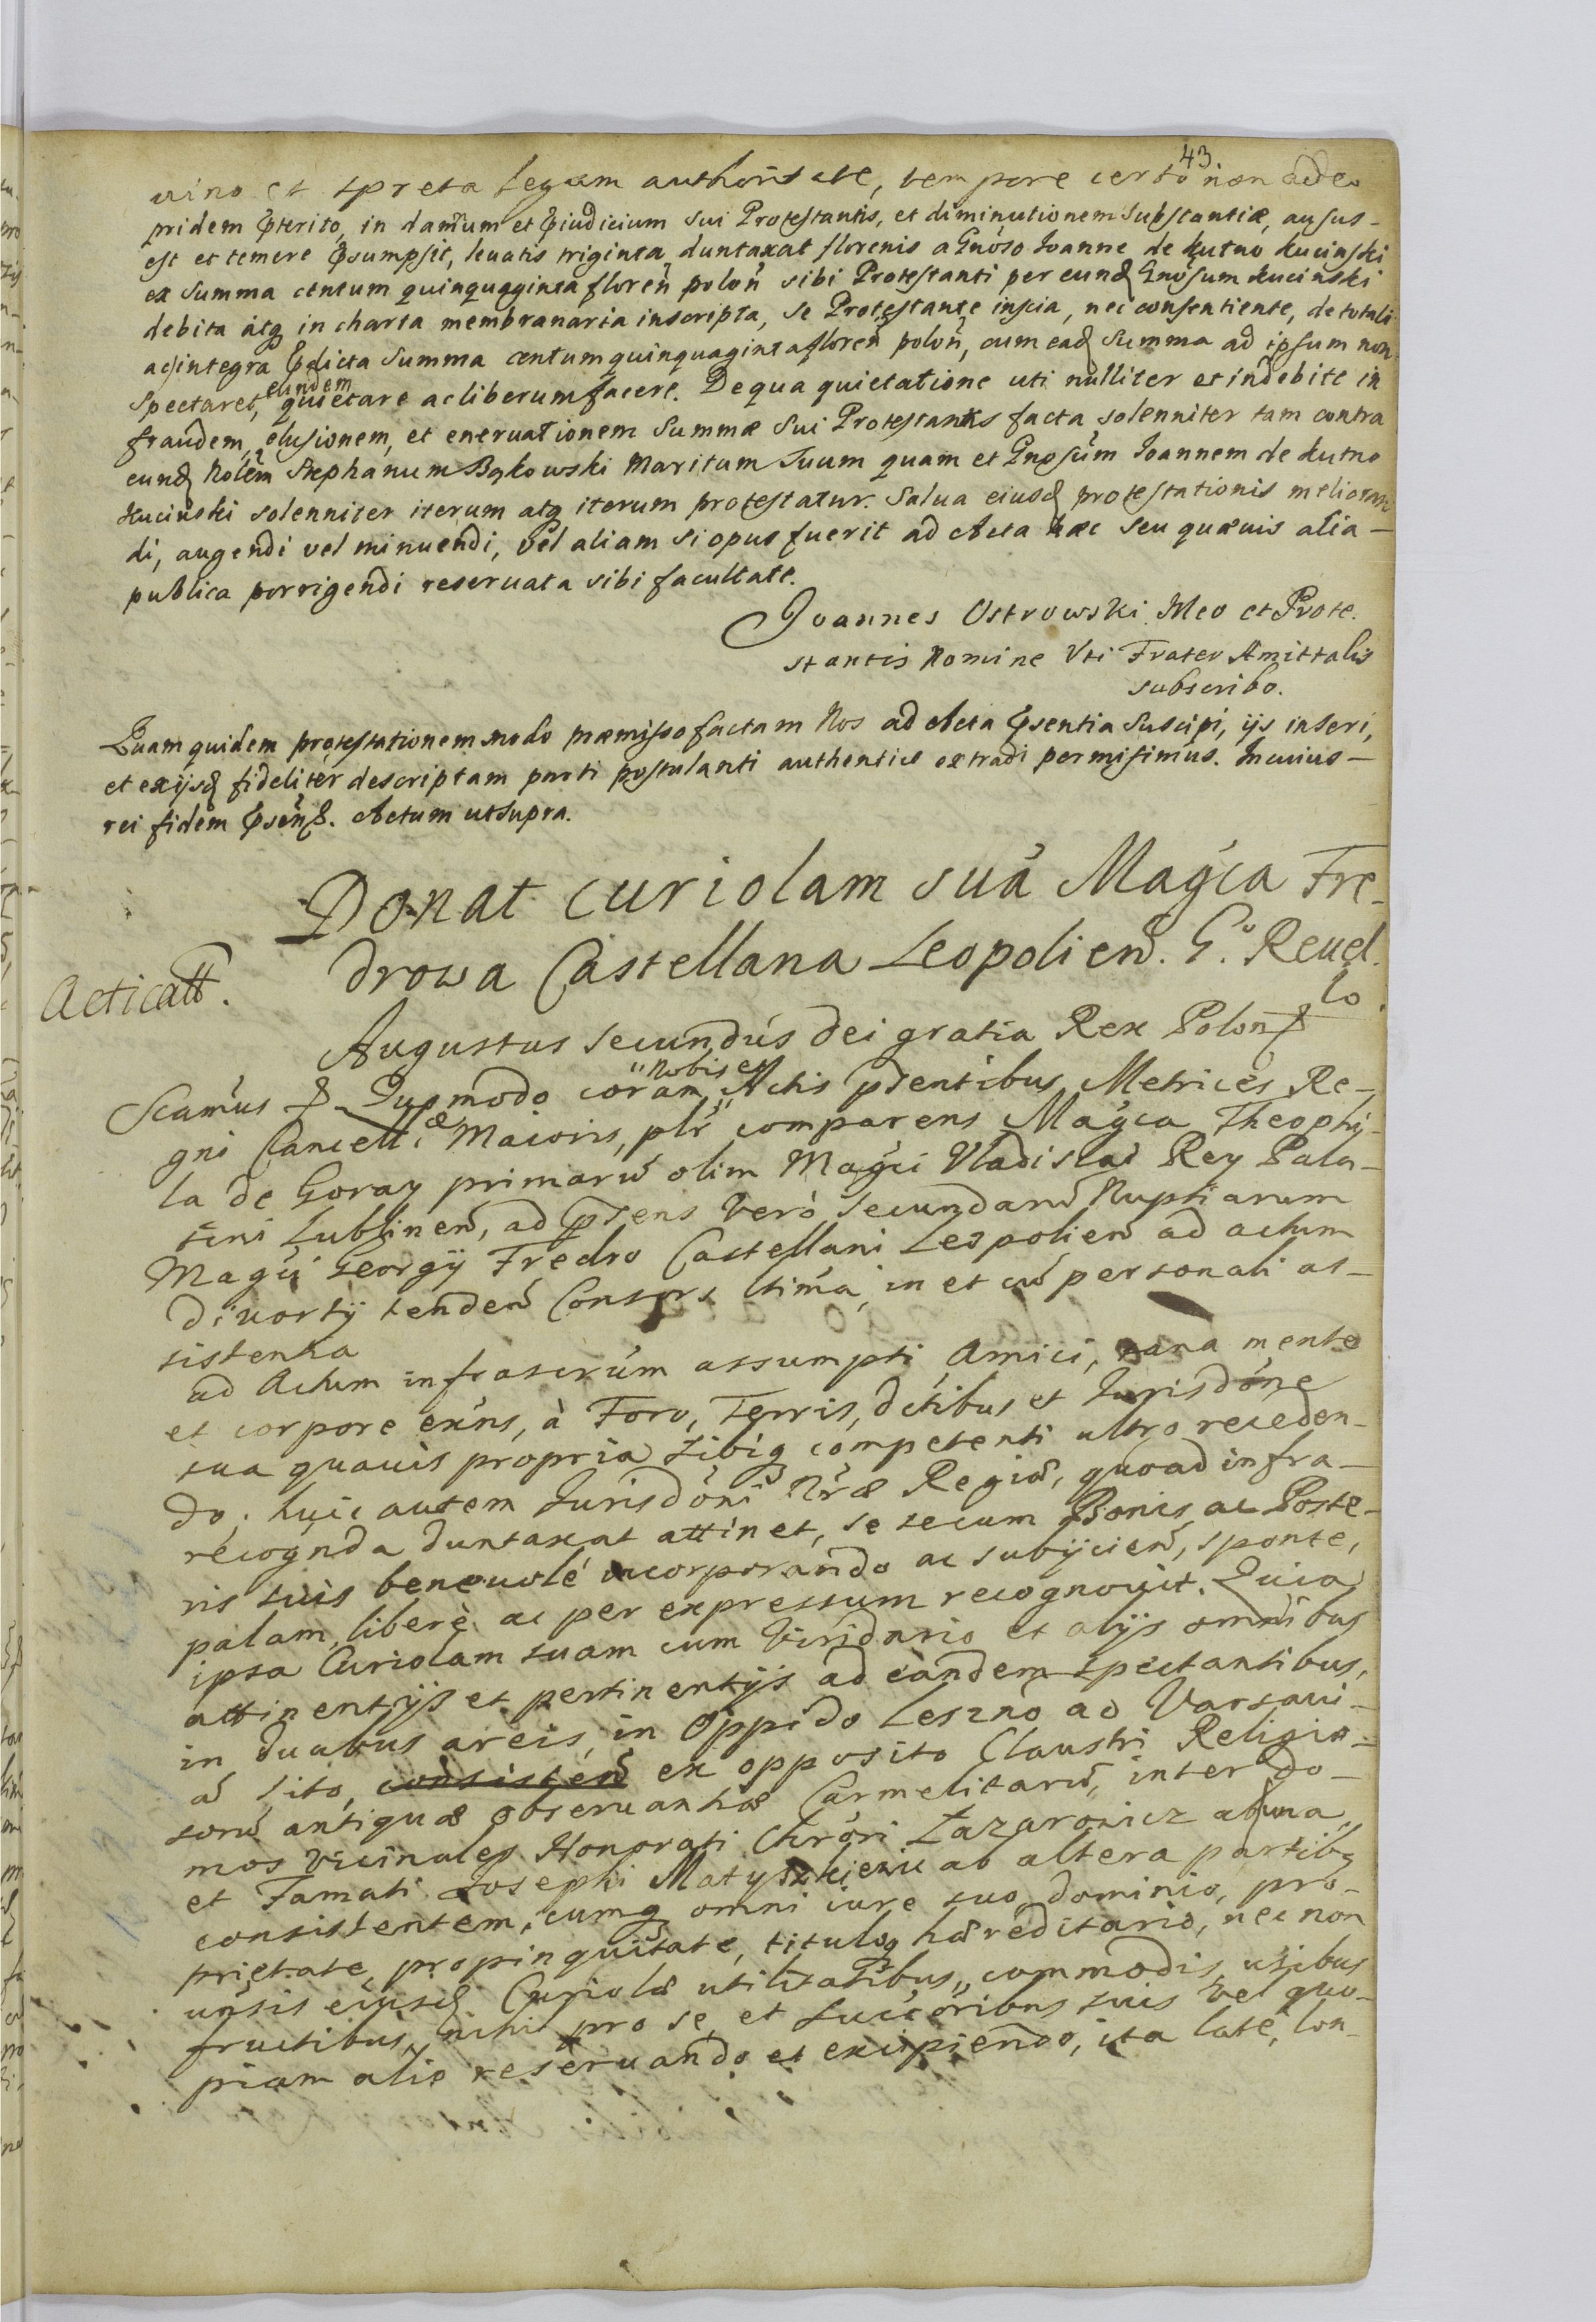 43.
uino et spreta legum authoritate, tempore certo non adeo
pridem pterito, in damnum et piudicium sui Protestantis, et diminutionem substantiæ, ausus-
est et temere psumpsit, leuatis triginta duntaxat florenis a Gnoso Ioanne de Kutno Kucinski
ex summa centum quinquaginta floreń poloń sibi Protestanti per eund Gnosum Kucinski
debita atq in charta membranaria inscripta, se Protestante inscia, nec consentiente, de totali
ac integra pdicta summa centum quinquaginta floreń poloń, cum ead summa ad ipsum non
spectaret, eundem quietare ac liberum facere. De qua quietatione uti nulliter et indebite in
fraudem, elusionem, et eneruationem summæ sui Protestantis facta solenniter tam contra
eund Nolem Stephanum Bąkowski Maritum suum quam et Gnosum Ioannem de Kutno
Kucinski solenniter iterum atq iterum protestatur. Salua eiusd protestationis melioran
di, augendi vel minuendi, vel aliam si opus fuerit ad Acta hæc seu quæuis alia-
publica porrigendi reseruata sibi facultate.
Joannes Ostrowski Meo et Prote.
stantis Nomine Vti Frater Amittalis
subscribo.
Quam quidem protestationem modo præmisso factam Nos ad Acta psentia suscipi, ijs inseri,
et ex ijsd fideliter descriptam parti postulanti authentice extradi permisimus. In cuius-
rei fidem psen &. Actum ut supra.
Donat curiolam suá Magca Fre-
drowa Castellana Leopolień. Go. Reuel
lo
Acticatt.
Augustus secundus Dei gratia Rex Polon &
Scamus & Quomodo coram Nobis et Actis pśentibus Metrices Re-
gni Cancell æ Maioris, plr comparens Magca Theophi-
la de Goray primarú olim Magci Vladislai Rey Pala-
tini Lublineń, ad psens verò secundarú Nuptiarum
Magci Georgij Fredro Castellani Leopolień ad actum
diuortij tendeń Consors ltima, in et cú personali as-
sistentia
ad Actum infrascrum assumpti Amici, sana mente
et corpore exns, à Foro, Terris, dctibus et Jurisdone
sua quauis propria sibiq competenti ultro receden-
do, huic autem Jurisdoni Nræ Regiæ, quoad infra-
recognda duntaxat attinet, se secum Bonis ac Poste-
ris suis beneuolé incorporando ac subijcień, sponte,
palam, liberè ac per expressum recognouit. Quia
ipsa Curiolam suam cum Viridario et alijs omnibus
attinentijs et pertinentijs ad eandem spectantibus,
in duabus areis, in Oppido Leszno ad Varsaui-
á sito, consisteń ex opposito Claustri Religio-
sorú antiquæ obseruantiæ Carmelitarú, inter do-
mos vicinales Honorati Chrori Lazarowicz ab una
et Famati Josephi Matyszkiewic ab altera partibq
consistentem, cumq omni iure suo, dominio, pro-
prietate, propinquitate, tituloq hæreditario, nec non
unsis eiusd Curiolæ utilitatibus, commodis, usibus
fructibus, nihil pro se et succoribus suis vel quo-
piam alio reseruando et excipiendo, ita late, lon-